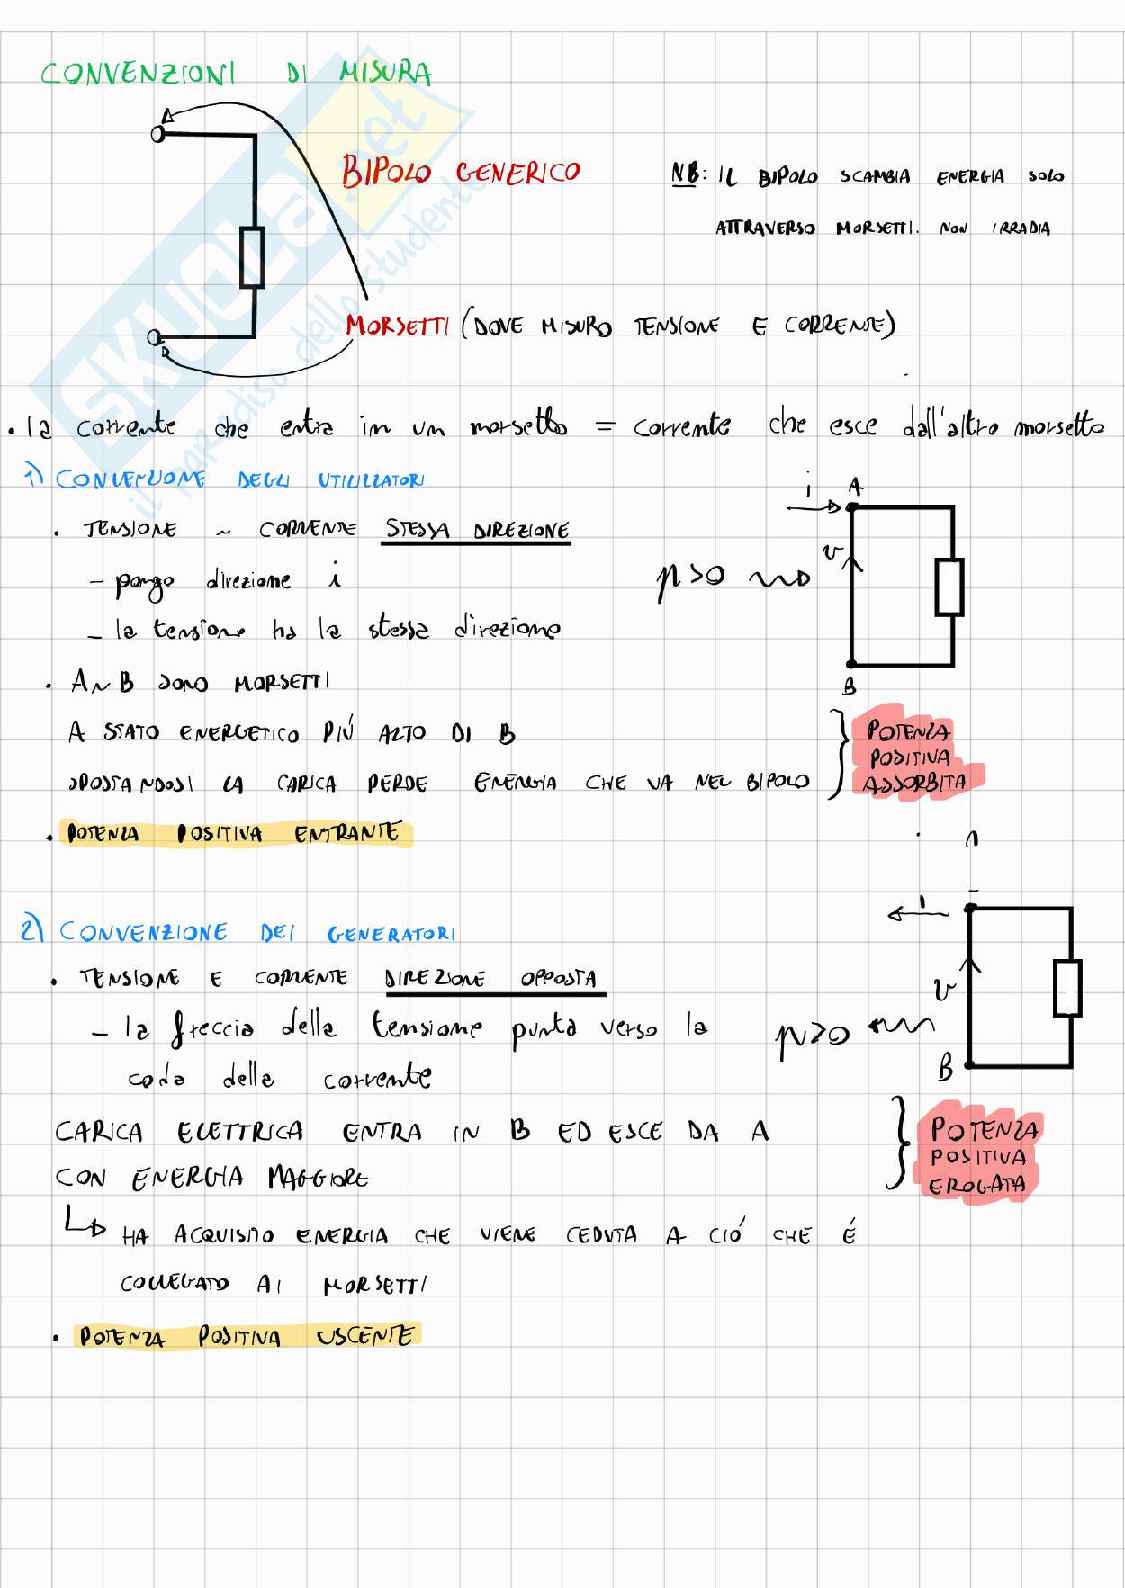 CONVENZIONI DI MISURA
BIPOLO GENERICO
NB: IL BIPOLO SCAMBIA ENERGIA SOLO
ATTRAVERSO MORSETTI. NON IRRADIA
MORSETTI (DOVE MISURO TENSIONE E CORRENTE)
SKUOLA.net
il paradiso dello studente
• la corrente che entra in un morsetto = corrente che esce dall'altro morsetto
1) CONVENZIONE DEGLI UTILIZZATORI
i A
• TENSIONE ~ CORRENTE STESSA DIREZIONE
v
- pongo direzione i
p>0
- la tensione ha la stessa direzione
• A ~ B SONO MORSETTI
B
A STATO ENERGETICO PIÚ ALTO DI B
SPOSTANDOSI LA CARICA PERDE ENERGIA CHE VA NEL BIPOLO
POTENZA
POSITIVA
ASSORBITA
• POTENZA POSITIVA ENTRANTE
2) CONVENZIONE DEI GENERATORI
i
• TENSIONE E CORRENTE DIREZIONE OPPOSTA
v
- la freccia della tensione punta verso la
p>0
coda della corrente
B
CARICA ELETTRICA ENTRA IN B ED ESCE DA A
CON ENERGIA MAGGIORE
POTENZA
POSITIVA
EROGATA
HA ACQUISITO ENERGIA CHE VIENE CEDUTA A CIÓ CHE É
COLLEGATO AI MORSETTI
• POTENZA POSITIVA USCENTE